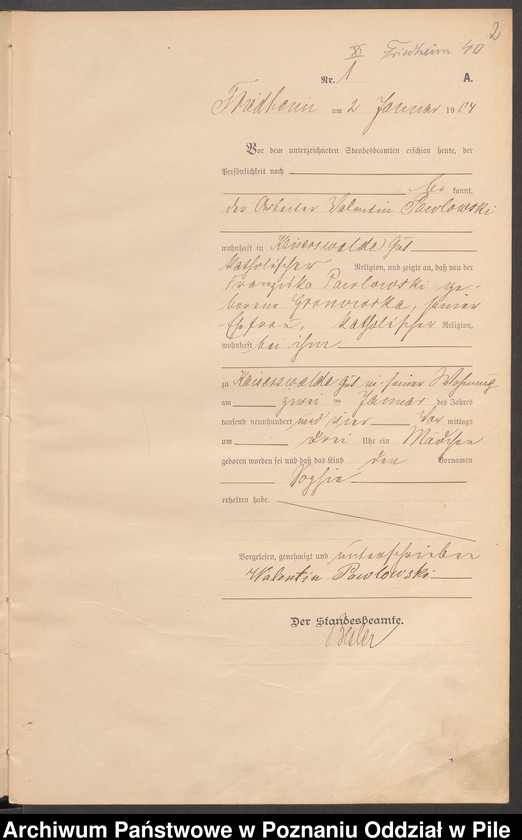 2
XI Friedheim 40
Nr. 1 A.
Friedheim am 2 Januar 1904
Vor dem unterzeichneten Standesbeamten erschien heute, der
Persönlichkeit nach
be kannt,
der Arbeiter Valentin Pawlowski
wohnhaft in Kaiserswalde Gut
katholischer Religion, und zeigte an, daß von der
Franziska Pawlowski ge-
borene Gronowska, seiner
Ehefrau, katholischer Religion,
wohnhaft bei ihm
zu Kaiserswalde Gut in seiner Wohnung
am zwei ten Januar des Jahres
tausend neunhundert und vier Vor mittags
um drei Uhr ein Mädchen
geboren worden sei und daß das Kind den Vornamen
Sophie
erhalten habe.
Vorgelesen, genehmigt und unterschrieben
Walentin Pawlowski
Der Standesbeamte.
Archiwum Państwowe w Poznaniu Oddział w Pile